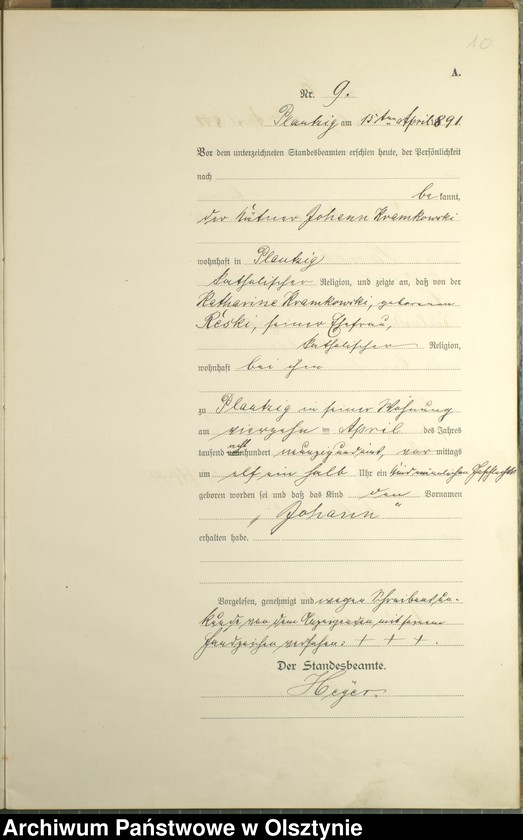 10
A.
Nr. 9.
Plautzig am 15ten April 1891.
Vor dem unterzeichneten Standesbeamten erschien heute, der Persönlichkeit
nach
be kannt,
der Kätner Johann Kramkowski
wohnhaft in Plautzig
katholischer Religion, und zeigte an, daß von der
Katharine Kramkowski, geborenen
Reski, seiner Ehefrau,
katholischer Religion,
wohnhaft bei ihm
zu Plautzig in seiner Wohnung
am vierzehn = April des Jahres
tausend acht hundert neunzig und eins, vor mittags
um elf ein halb Uhr ein Kind männlichen Geschlechts
geboren worden sei und daß das Kind den Vornamen
„Johann“
erhalten habe.
Vorgelesen, genehmigt und wegen Schreibensun-
kunde von dem Anzeigenden mit seinem
Handzeichen versehen: + + +.
Der Standesbeamte.
Heyer
Archiwum Państwowe w Olsztynie